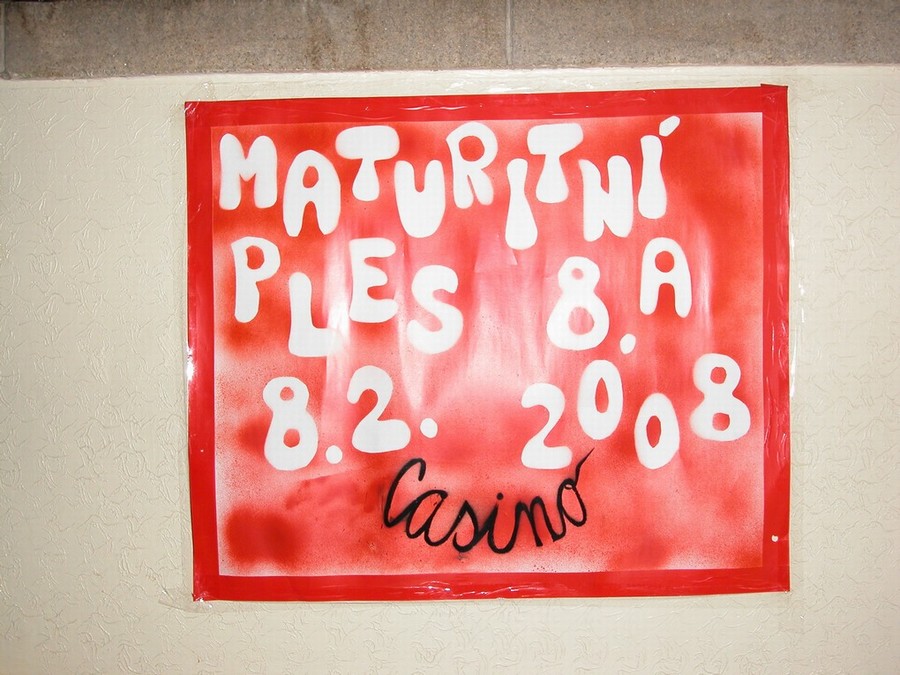 MATURITNÍ
PLES 8.A
8.2. 2008
Casinó